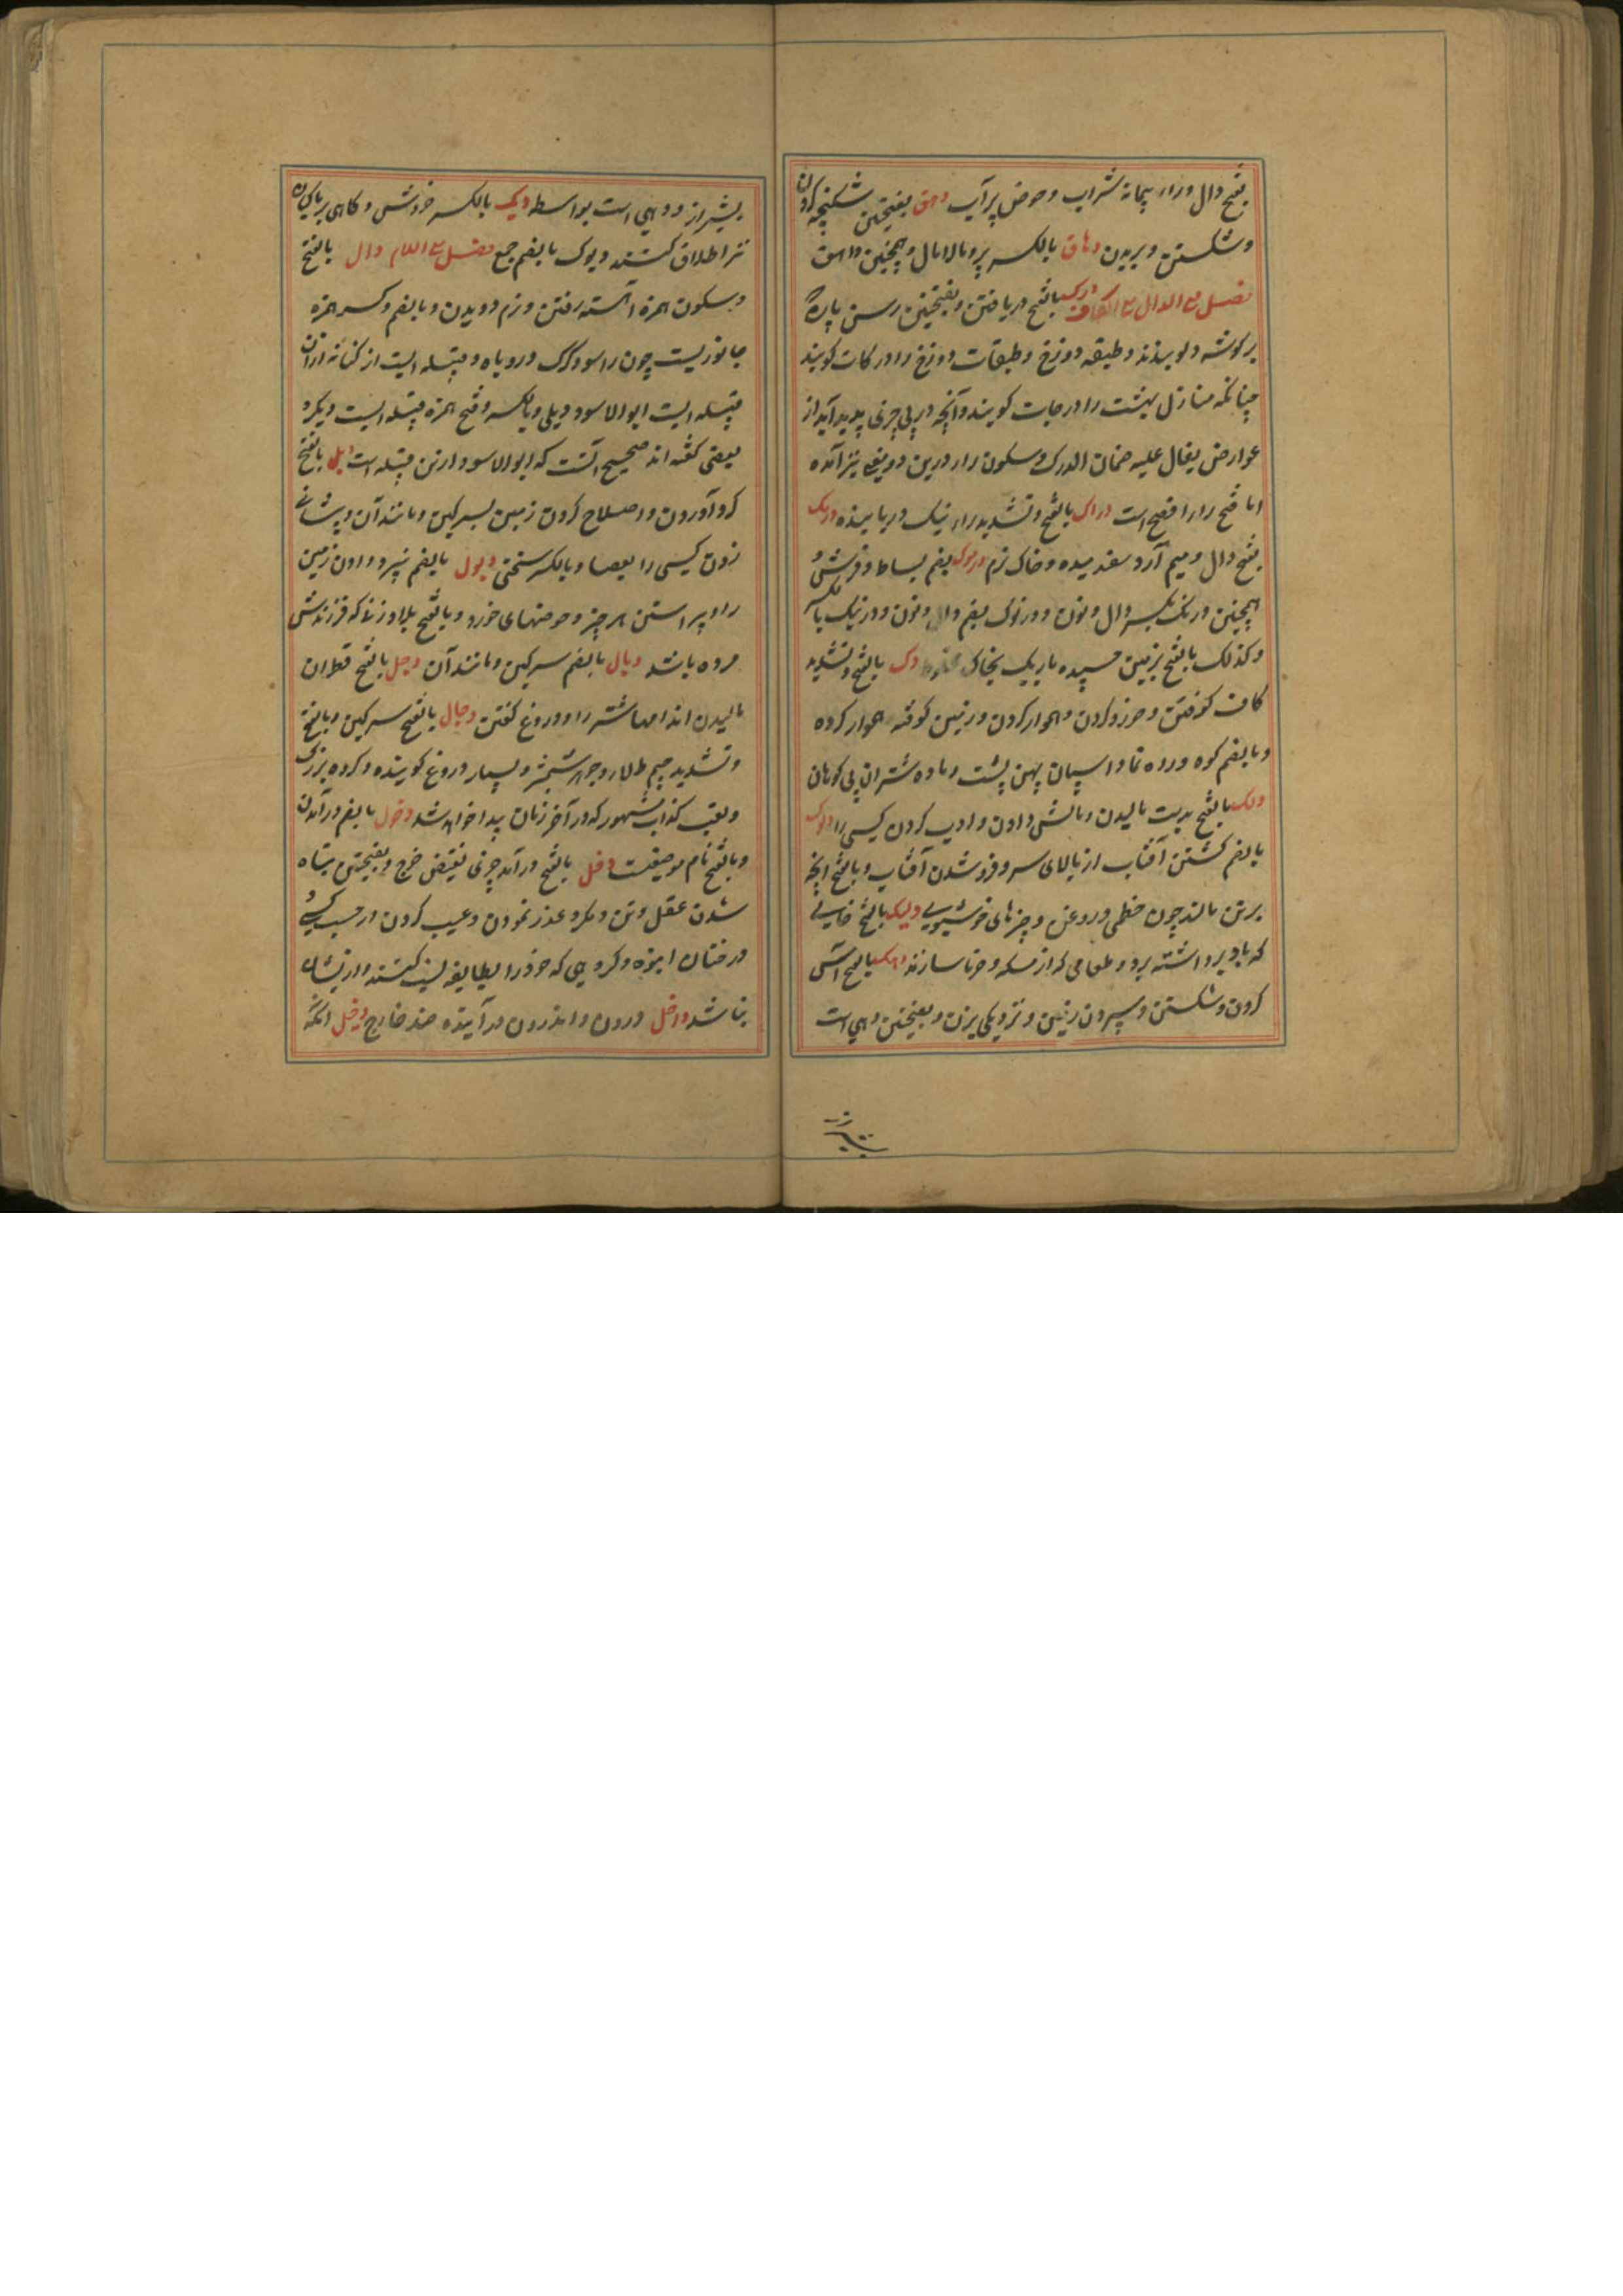 بفتح دال وراء پیمانهٔ شراب وحوض پرآب دهق بفتحتین شکنجه کردن
وشکستن وبریدن دهاق بالکسر پر ومالامال وهمچنین داهق
فصل مع الدال مع الکاف درک بالفتح دریافتن وبفتحتین رسن پاره که
برکوشه دلو بندند وطبقه دوزخ وطبقات دوزخ را درکات کویند
چنانکه منازل بهشت را درجات کویند وآنچه درپی چیزی پدید آید از
عوارض یقال علیه ضمان الدرک وسکون را درین دو معنی نیز آمده
اما فتح را افصح است دراک بالفتح وتشدید راء نیک دریابنده درمک
بفتح دال ومیم آرد سفید میده وخاک نرم درنوک بضم بساط وفرش و
همچنین درنک بکسر دال ونون ودرنوک بضم دال ونون ودرنیک بالکسر
وکذلک بالفتح بزمین چسپیده باریک بخاک مخلوط دک بالفتح وتشدید
کاف کوفتن وخرد کردن وهموار کردن وزمین کوفته هموار کرده
وبالضم کوه واسپان پهن پشت وماده شتران بی کوهان
دلک بالفتح بدست مالیدن ومالش دادن وادب کردن کسی را دلوک
بالضم کشتن آفتاب از بالای سر وفروشدن آفتاب وبالفتح آنچه
برتن مالند چون خطمی وروغن وچیزهای خوشبوی دلیک بالفتح خاکی
که باد برداشته برد وطعامی که از مسکه وخرما سازند دهک بالفتح آس
کردن وشکستن وسپردن زمین ونزدیکی بزن وبفتحتین دهی است
بشیراز ودهی است بواسط دیک بالکسر خروس وکاهی بر ماکیان
نیز اطلاق کنند دیوک بالضم جمع فصل مع اللام دال بالفتح
وسکون همزه آهسته رفتن ونرم دویدن وبالضم وکسر همزه
جانوریست چون راسو وکرک وروباه وقبیله ایست از کنانه از آن
قبیله ایست ابوالاسود دیلی وبالکسر وفتح همزه قبیله ایست دیکر و
بعضی کفته اند صحیح آنست که ابوالاسود ازین قبیله است دبل بالفتح
کرد آوردن واصلاح کردن زمین بسرکین ومانند آن وپشتاپشت
زدن کسی را بعصا وبالکسر سختی دبول بالضم نیرو دادن زمین
را وپیراستن هر چیز وحوضهای خورد وبالفتح بلا وزنی که فرزندش
مرده باشد دبال بالضم سرکین ومانند آن دجل بالفتح قطران
مالیدن اندامهای شتر را ودروغ کفتن دجال بالفتح سرکین وبالفتح
وتشدید جیم طلا وجوهر شمشیر وبسیار دروغ کوینده وکروه بزرک
ولقب کذاب مشهور که در آخر زمان پیدا خواهد شد دخول بالضم درآمدن
وبالفتح نام موضعیست دخل بالفتح درآمد چیزی نقیض خرج وبفتحتین تباه
شدن عقل وتن ومکر وغدر نمودن وعیب کردن در حسب کسی و
درختان انبوه وکروهی که خود را بطایفه نسبت کنند واز ایشان
نباشند داخل درون واندرون درآینده ضد خارج دخیل آنکه
شیراز